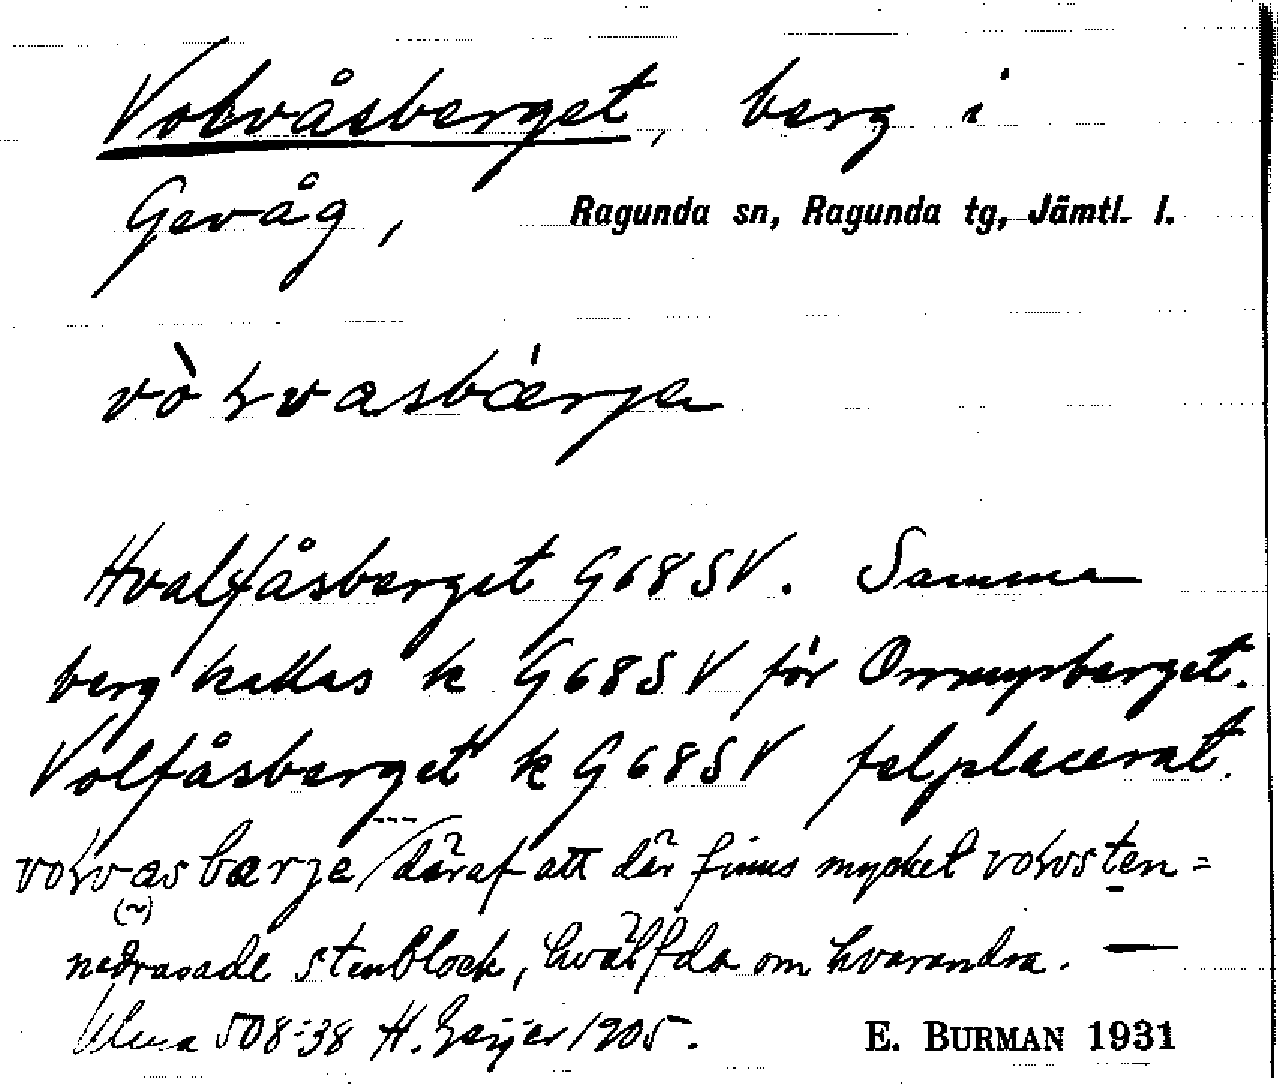 Volvåsberget, berg i
Gevåg, Ragunda sn, Ragunda tg, Jämtl. l.
Hvalfåsberget G68SV. Samma
berg kallas k G68SV för Orrmyrberget.
Volfåsberget k G68SV felplacerat.
däraf att där finns mycket =
nedrasade stenblock, hvälfda om hvarandra. —
Ulma 508:38 H. Geijer 1905. E. BURMAN 1931